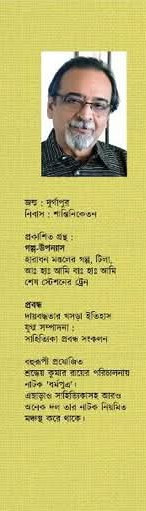 জন্ম : দুর্গাপুর
নিবাস : শান্তিনিকেতন
প্রকাশিত গ্রন্থ :
গল্প-উপন্যাস
হারাধন মণ্ডলের গল্প, টিলা,
আঃ হাঃ আমি বাঃ হাঃ আমি
শেষ স্টেশনের ট্রেন
প্রবন্ধ
দায়বদ্ধতার খসড়া ইতিহাস
যুগ্ম সম্পাদনা :
সাহিত্যিকা প্রবন্ধ সংকলন
বহুরূপী প্রযোজিত
শ্রদ্ধেয় কুমার রায়ের পরিচালনায়
নাটক 'ধর্মপুত্র'।
এছাড়াও সাহিত্যিকাসহ আরও
অনেক দল তার নাটক নিয়মিত
মঞ্চস্থ করে থাকে।